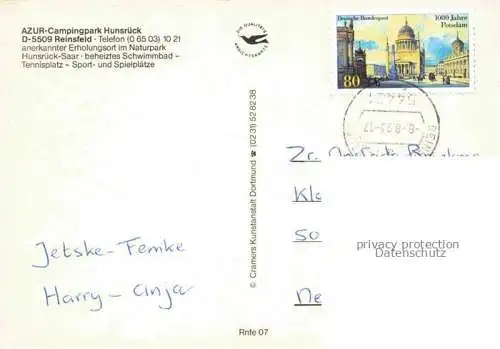 AZUR-Campingpark Hunsrück
D-5509 Reinsfeld · Telefon (0 65 03) 10 21
anerkannter Erholungsort im Naturpark
Hunsrück-Saar · beheiztes Schwimmbad –
Tennisplatz – Sport- und Spielplätze
Deutsche Bundespost
1000 Jahre
Potsdam
80
-6.8.93-17
© Cramers Kunstanstalt Dortmund ☎ (0231) 52 82 38
Zr.
Kl
So
Ne
privacy protection
Datenschutz
Jetske-Femke
Harry-Anja
Rnfe 07